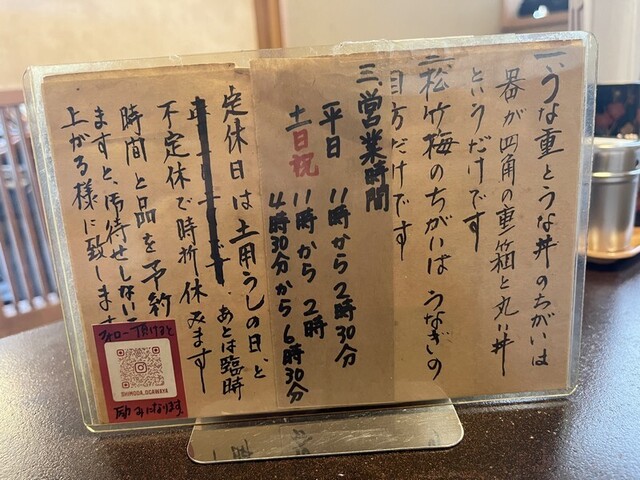 一、うな重とうな丼のちがいは
器が四角の重箱と丸い丼
というだけです
二、松竹梅のちがいは うなぎの
目方だけです
三、営業時間
平日 11時から2時30分
土日祝 11時から2時
4時30分から6時30分
定休日は土用うしの日と
あとは臨時
不定休で時折休みます
時間と品を予約
ますと、お待せしない
上がる様に致します
フォロー頂けると
SHIMODA.OGAWAYA
励みになります。